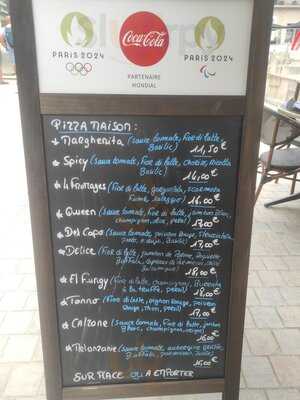 PARIS 2024
Coca-Cola
PARTENAIRE
MONDIAL
PARIS 2024
PIZZA MAISON:
Margherita (sauce tomate, Fior di latte,
Basilic) 11,50 €
Spicy (sauce tomate, Fior di latte, Chorizo, Ricotta
Basilic) 14,00 €
4 Fromages (Fior di latte, gorgonzola, scamorza
16,00 €
Queen (sauce tomate, Fior di latte, jambon Blanc,
champignon, persil) 17,00 €
Del Capo (sauce tomate,
Basilic) 17,00 €
Délice (Fior di latte, jambon de Parme,
18,00 €
El Fungy (Fior di latte, champignon, Burrata
à la truffe, persil) 18,00 €
Tonno (Fior di latte, oignon rouge, poivron
rouge, thon, persil) 17,00
Calzone (sauce tomate, Fior di latte, jambon
Blanc, champignon, 16,00 €
Melanzanie (sauce tomate, aubergine grillée,
16,00 €
SUR PLACE OU A EMPORTER